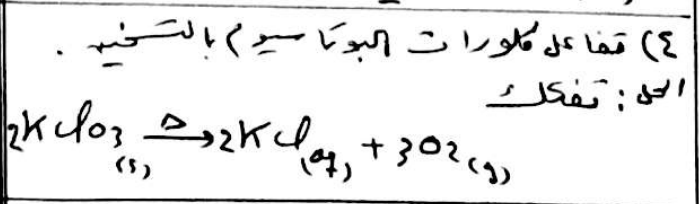 ٤) تفاعل كلورات البوتاسيوم بالتسخين .
الحل : تفكك
2KClO3(s) —Δ→ 2KCl(aq) + 3O2(g)